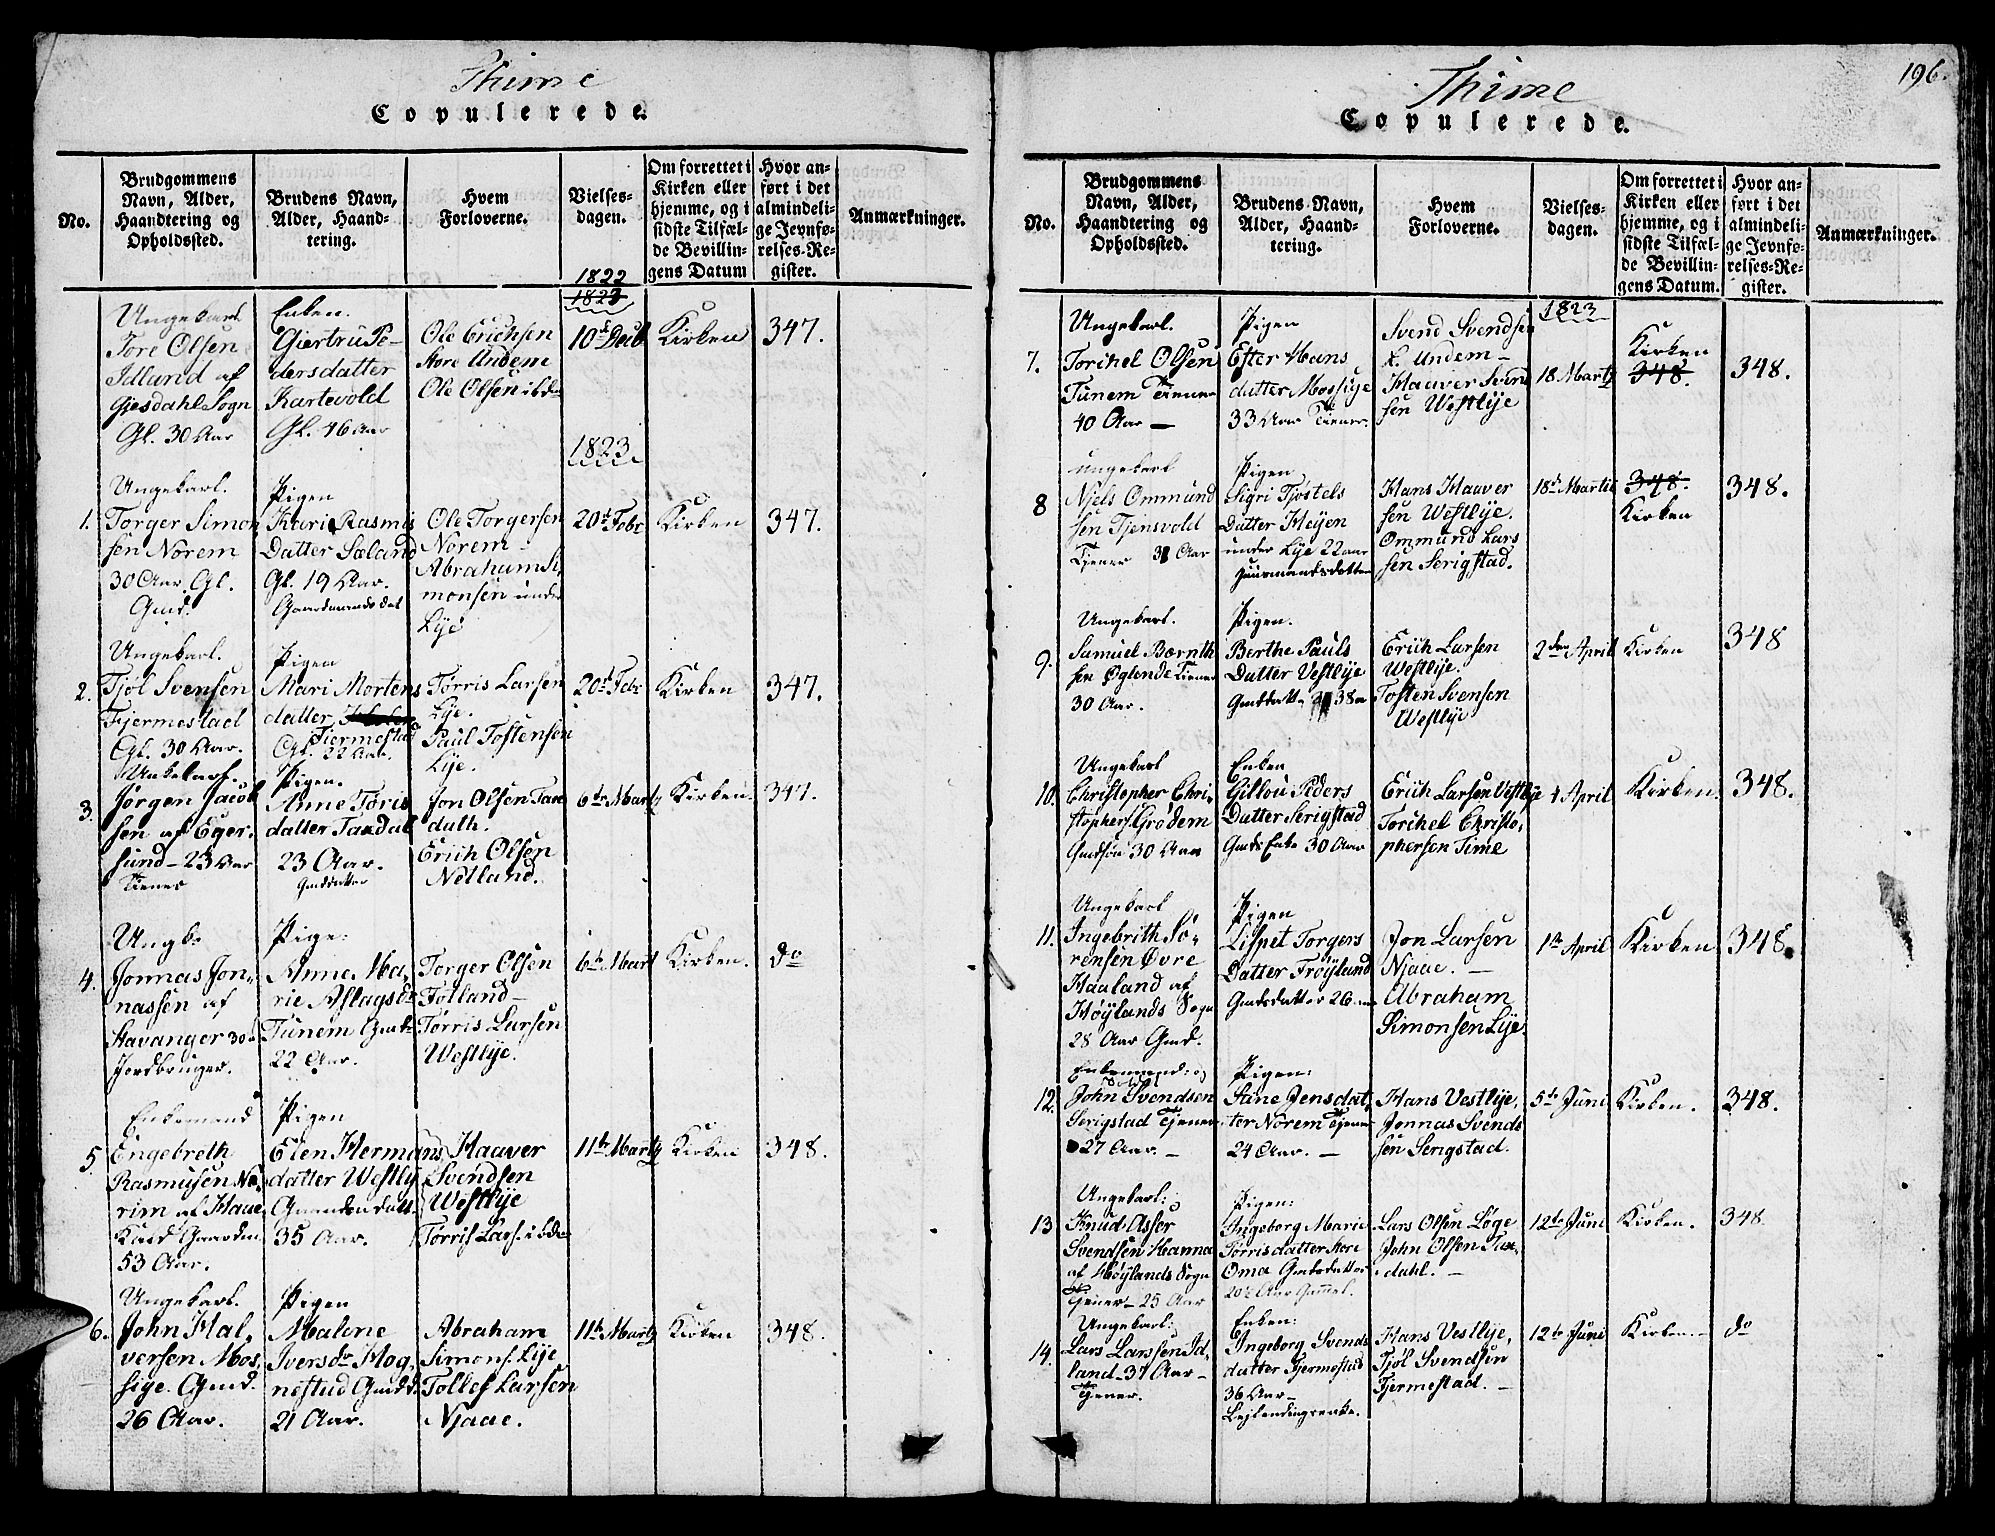 Thime
Copulerede.
No.
Brudgommens
Navn, Alder,
Haandtering og
Opholdssted.
Brudens Navn,
Alder, Haand-
tering.
Hvem
Forloverne.
Vielses-
dagen.
Om forrettet i
Kirken eller
hjemme, og i
sidste Tilfæl-
de Bevillin-
gens Datum
Hvor an-
ført i det
almindeli-
ge Jevnfø-
relses-Re-
gister.
Anmærkninger.
1822
1823
Ungekarl
Tore Olsen
Idland af
Gjesdahl Sogn
Gl. 30 Aar
Enken.
Giertru Pe-
dersdatter
Kartevold
Gl. 46 Aar
Ole Erichsen
Store Undem
Ole Olsen ibd
10d Decb
Kirken
347.
1823
1.
Ungekarl.
Torger Simon
sen Norem
30 Aar. Gl.
Gmd.
Pigen
Kari Rasmus
Datter Sæland
Gl. 19 Aar.
Gaardmands dat
Ole Torgersen
Norem-
Abraham Si
monsen under
Lye
20d Febr
Kirken
347.
2.
Ungekarl.
Tjøl Svensen
Fjermestad
Gl. 30 Aar.
Pigen
Mari Mortens
datter
Fiermestad
Gl. 22 Aar.
Tørris Larsen
Lye.
Paul Tostensen
Lye.
20d Febr
Kirken
347.
3.
Unkekarl.
Jørgen Jacob
sen af Eger-
sund - 23 Aar
Tiener
Pigen.
Anne Toris
datter Taxdal
23 Aar.
Gmdsdatter
Jon Olsen Taxe
dalh.
Erich Olsen
Netland.
6te Marty
Kirken.
347.
4.
Ungk.
Jonnas Jon-
nassen af
Stavanger 30 a
Jordbruger.
Pige:
Anne Ma-
rie Aslagsdr
Tunem Gmds
22 Aar.
Torger Olsen
Tolland-
Tørris Larsen
Westlye.
6te Mart
Kirken.
do
5.
Enkemand
Engebreth
Rasmusen No-
rim af Haae
Kald Gaardm
53 Aar.
Pigen
Elen Hermans
datter Westly
Gaardm datt.
35 Aar.
Haaver
Svendsen
Westlye
Tørris Lars. ibdm
11te Marty
Kirken
348.
6.
Ungekarl.
John Hal-
versen Mos-
sige. Gmd.
26 Aar.
Pigen
Malene
Iversdr Hog-
nestad Gmdd
21 Aar.
Abraham
Simons. Lye
Tollef Larsen
Njaae.
11te Marty
Kirken
348.
Thime
196.
Copulerede.
No.
Brudgommens
Navn, Alder,
Haandtering og
Opholdssted.
Brudens Navn,
Alder, Haand-
tering.
Hvem
Forloverne.
Vielses-
dagen.
Om forrettet i
Kirken eller
hjemme, og i
sidste Tilfæl-
de Bevillin-
gens Datum.
Hvor an-
ført i det
almindeli-
ge Jevnfø-
relses-Re-
gister.
Anmærkninger.
1823
7.
Ungekarl.
Torchel Olsen
Tunem Tiener
40 Aar -
Pigen
Ester Hans
datter Mossige
33 Aar Tiener.
Svend Svendsen
L. Undem -
Haaver Svend
sen Westlye
18 Marty
Kirken
348.
348.
8
ungekarl
Njels Ommund
sen Tjensvold
Tjener 31 Aar
Pigen
Sigri Tjøstels
Datter Heyen
under Lye 22 aar
Huusmandsdatter
Hans Haaver
sen Westlye.
Ommund Lars
sen Serigstad.
18d Martii
348.
Kirken
348.
9.
Ungekarl.
Samuel Bærnth
sen Øglende Tiener
30 Aar.
Pigen.
Berthe Pauls
Datter Vestlye
Gmdsdatt. 38 a
Erich Larsen
Westlye.
Tosten Svensen
Westlye
2den April
Kirken
348
10.
Ungekarl
Christopher Chri-
stophers. Grødem
Gmdsøn 30 Aar
Enken
Gitlou Peders
Datter Serigstad
Gmds Enke 30 Aar
Erich Larsen Vestlye
Torchel Christo-
phersen Time
4 April
Kirken.
348.
11.
Ungekarl
Ingebrith Sø-
rensen Øvre
Haaland af
Høylands Sogn
28 Aar Gmd.
Pigen
Lispet Torgers
Datter Frøylund
Gmdsdatter 26 a
Jon Larsen
Njaae. -
Abraham
Simonsen Lye
1te April
Kirken
348.
12.
Enkemand: og
John Svendsen
Serigstad Tjener
27 Aar. -
Pigen:
Stine Jensdat-
ter Norem Tjener
24 Aar. -
Hans Vestlye.
Jonnas Svends
sen Serigstad.
5te Juni
Kirken.
348.
13
Ungekarl:
Knud Asser
Svendsen Hanna
af Høylands Sogn
Tjener - 25 Aar
Pigen:
Ingeborg Marie
Tørrisdatter Store
Oma Gmdsdatter
20½ Aar Gammel.
Lars Olsen Løge
John Olsen Tax-
dahl. -
12te Juni
Kirken.
348.
14.
Ungekarl:
Lars Larssen Id-
land - 37 Aar -
Tjener.
Enken:
Ingeborg Svends
datter Fjermestad
36 Aar -
Lejlendingsenke.
Hans Vestlye,
Tjøl Svendsen
Fjermestad. -
12te Juni
Kirken. -
do